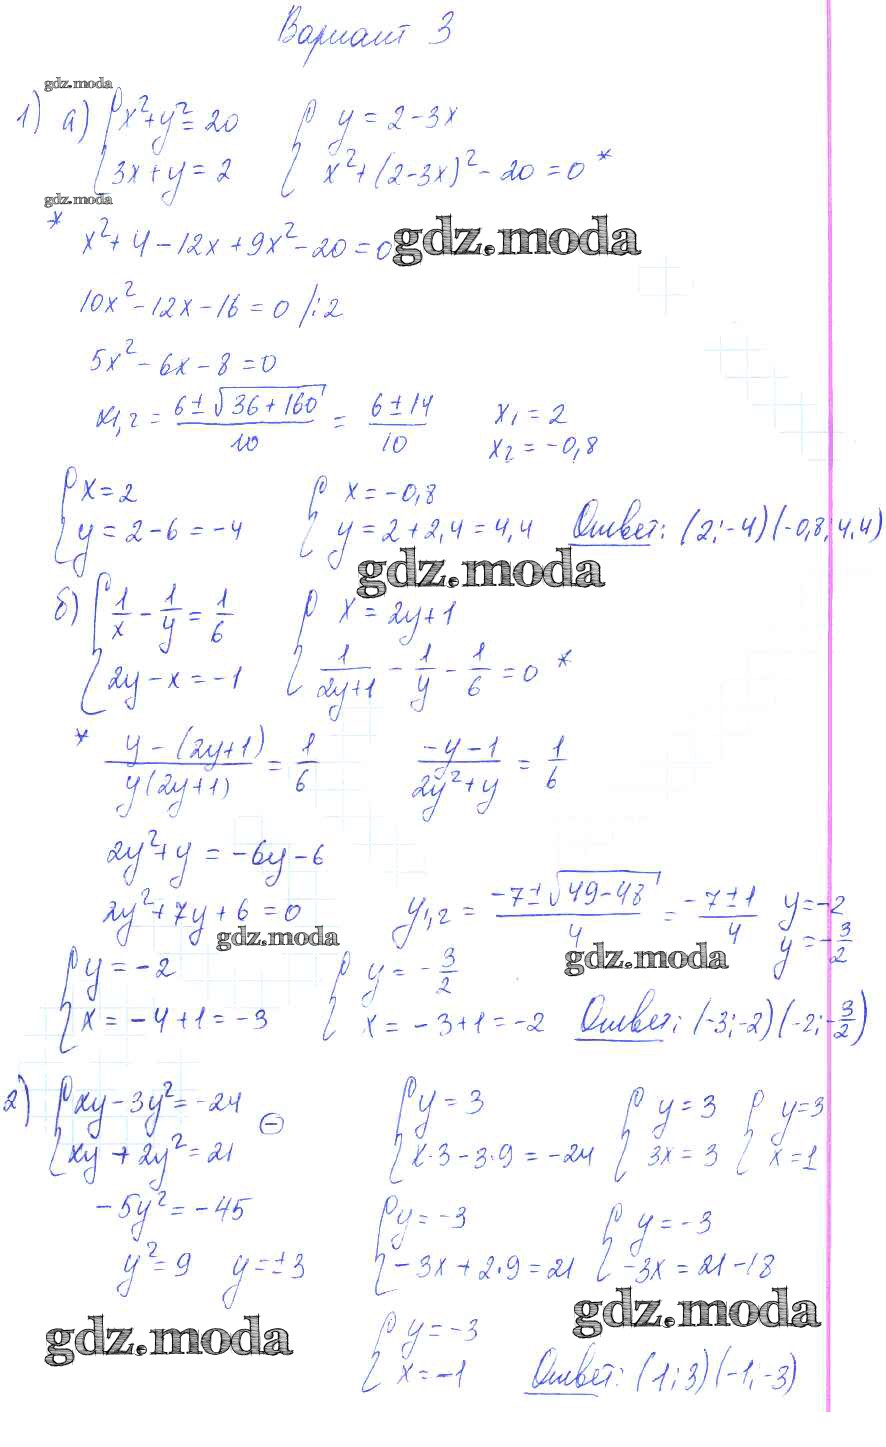 Вариант 3
gdz.moda
1) а) { x²+y²=20 { y = 2-3x
3x+y=2 x²+(2-3x)²-20=0 *
gdz.moda
* x²+4-12x+9x²-20=0
gdz.moda
10x²-12x-16=0 /:2
5x²-6x-8=0
x1,2 = (6±√(36+160))/10 = (6±14)/10 x₁=2
x₂=-0,8
{ x=2 { x=-0,8
y=2-6=-4 y=2+2,4=4,4 Ответ: (2;-4)(-0,8;4,4)
gdz.moda
б) { 1/x - 1/y = 1/6 { x=2y+1
2y-x=-1 1/(2y+1) - 1/y - 1/6 = 0 *
* (y-(2y+1))/(y(2y+1)) = 1/6 (-y-1)/(2y²+y) = 1/6
2y²+y = -6y-6
2y²+7y+6=0 y1,2 = (-7±√(49-48))/4 = (-7±1)/4 y=-2
y=-3/2
gdz.moda
gdz.moda
{ y=-2 { y=-3/2
x=-4+1=-3 x=-3+1=-2 Ответ: (-3;-2)(-2;-3/2)
2) { xy-3y²=-24 { y=3 { y=3 { y=3
xy+2y²=21 ⊖ x·3-3·9=-24 3x=3 x=1
-5y²=-45 { y=-3 { y=-3
y²=9 y=±3 -3x+2·9=21 -3x=21-18
gdz.moda
gdz.moda
{ y=-3
x=-1 Ответ: (1;3)(-1;-3)